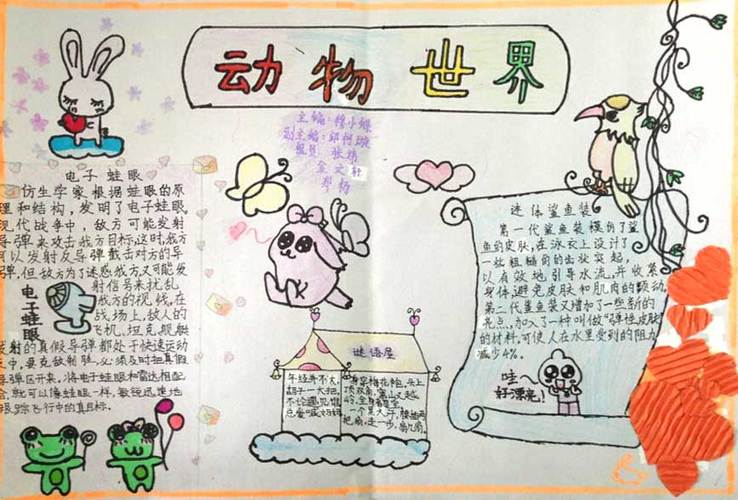 动物世界
主编:穆小蝶
副主编:邱柯璇
组员:张炜
金文轩
郑杨
电子蛙眼
仿生学家根据蛙眼的原
理和结构，发明了电子蛙眼。
现代战争中，敌方可能发射
导弹来攻击我方目标，这时我方
可以发射反导弹截击对方的导
弹，但敌方为了迷惑我方，又可能发
射信号来扰乱
我方的视线，在
战场上，敌人的
飞机、坦克、舰艇
发射的真假导弹都处于快速运动
之中，要克敌制胜，必须及时把真假
导弹区开来，将电子蛙眼和雷达相配
合，就可以像蛙眼一样，敏锐迅速地
跟踪飞行中的真目标。
电子蛙眼
谜语屋
年经并不大，
胡子一大把，
不论遇见谁
总爱喊妈妈
身穿梅花袍，头上
顶双角，
一个黑大汉，
把扇，走一步，扇几扇。
迷体鲨鱼装
第一代鲨鱼装模仿了鲨
鱼的皮肤，在泳衣上设计了
一些粗糙的齿状突起，
以有效地引导水流，并收紧
身体，避免皮肤和肌肉的颤动。
第二代鲨鱼装又增加了一些新的
亮点，加入了一种叫做“弹性皮肤”
的材料，可使人在水里受到的阻力
减少4%。
哇
好漂亮!